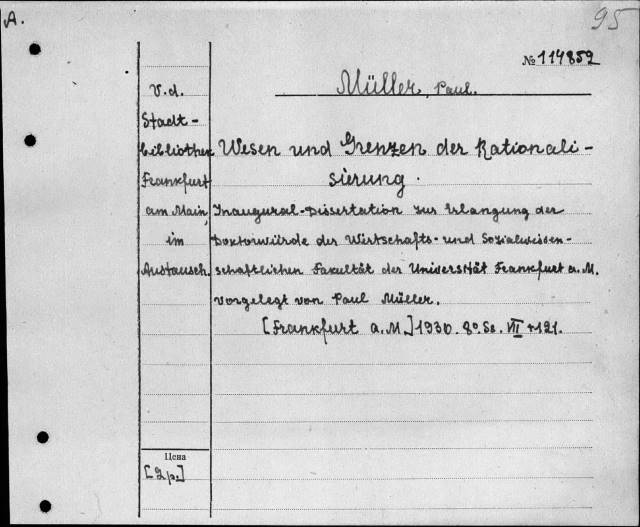 A.
95
№ 114852
Müller, Paul.
V. d.
Stadt-
bibliothek
Frankfurt
am Main,
im
Austausch.
Wesen und Grenzen der Rationali-
sierung.
Inaugural-Dissertation zur Erlangung der
Doktorwürde der Wirtschafts- und Sozialwissen-
schaftlichen Fakultät der Universität Frankfurt a. M.
vorgelegt von Paul Müller.
[Frankfurt a. M.] 1930. 8°. Ss. VII + 121.
Цена
[2 р.]